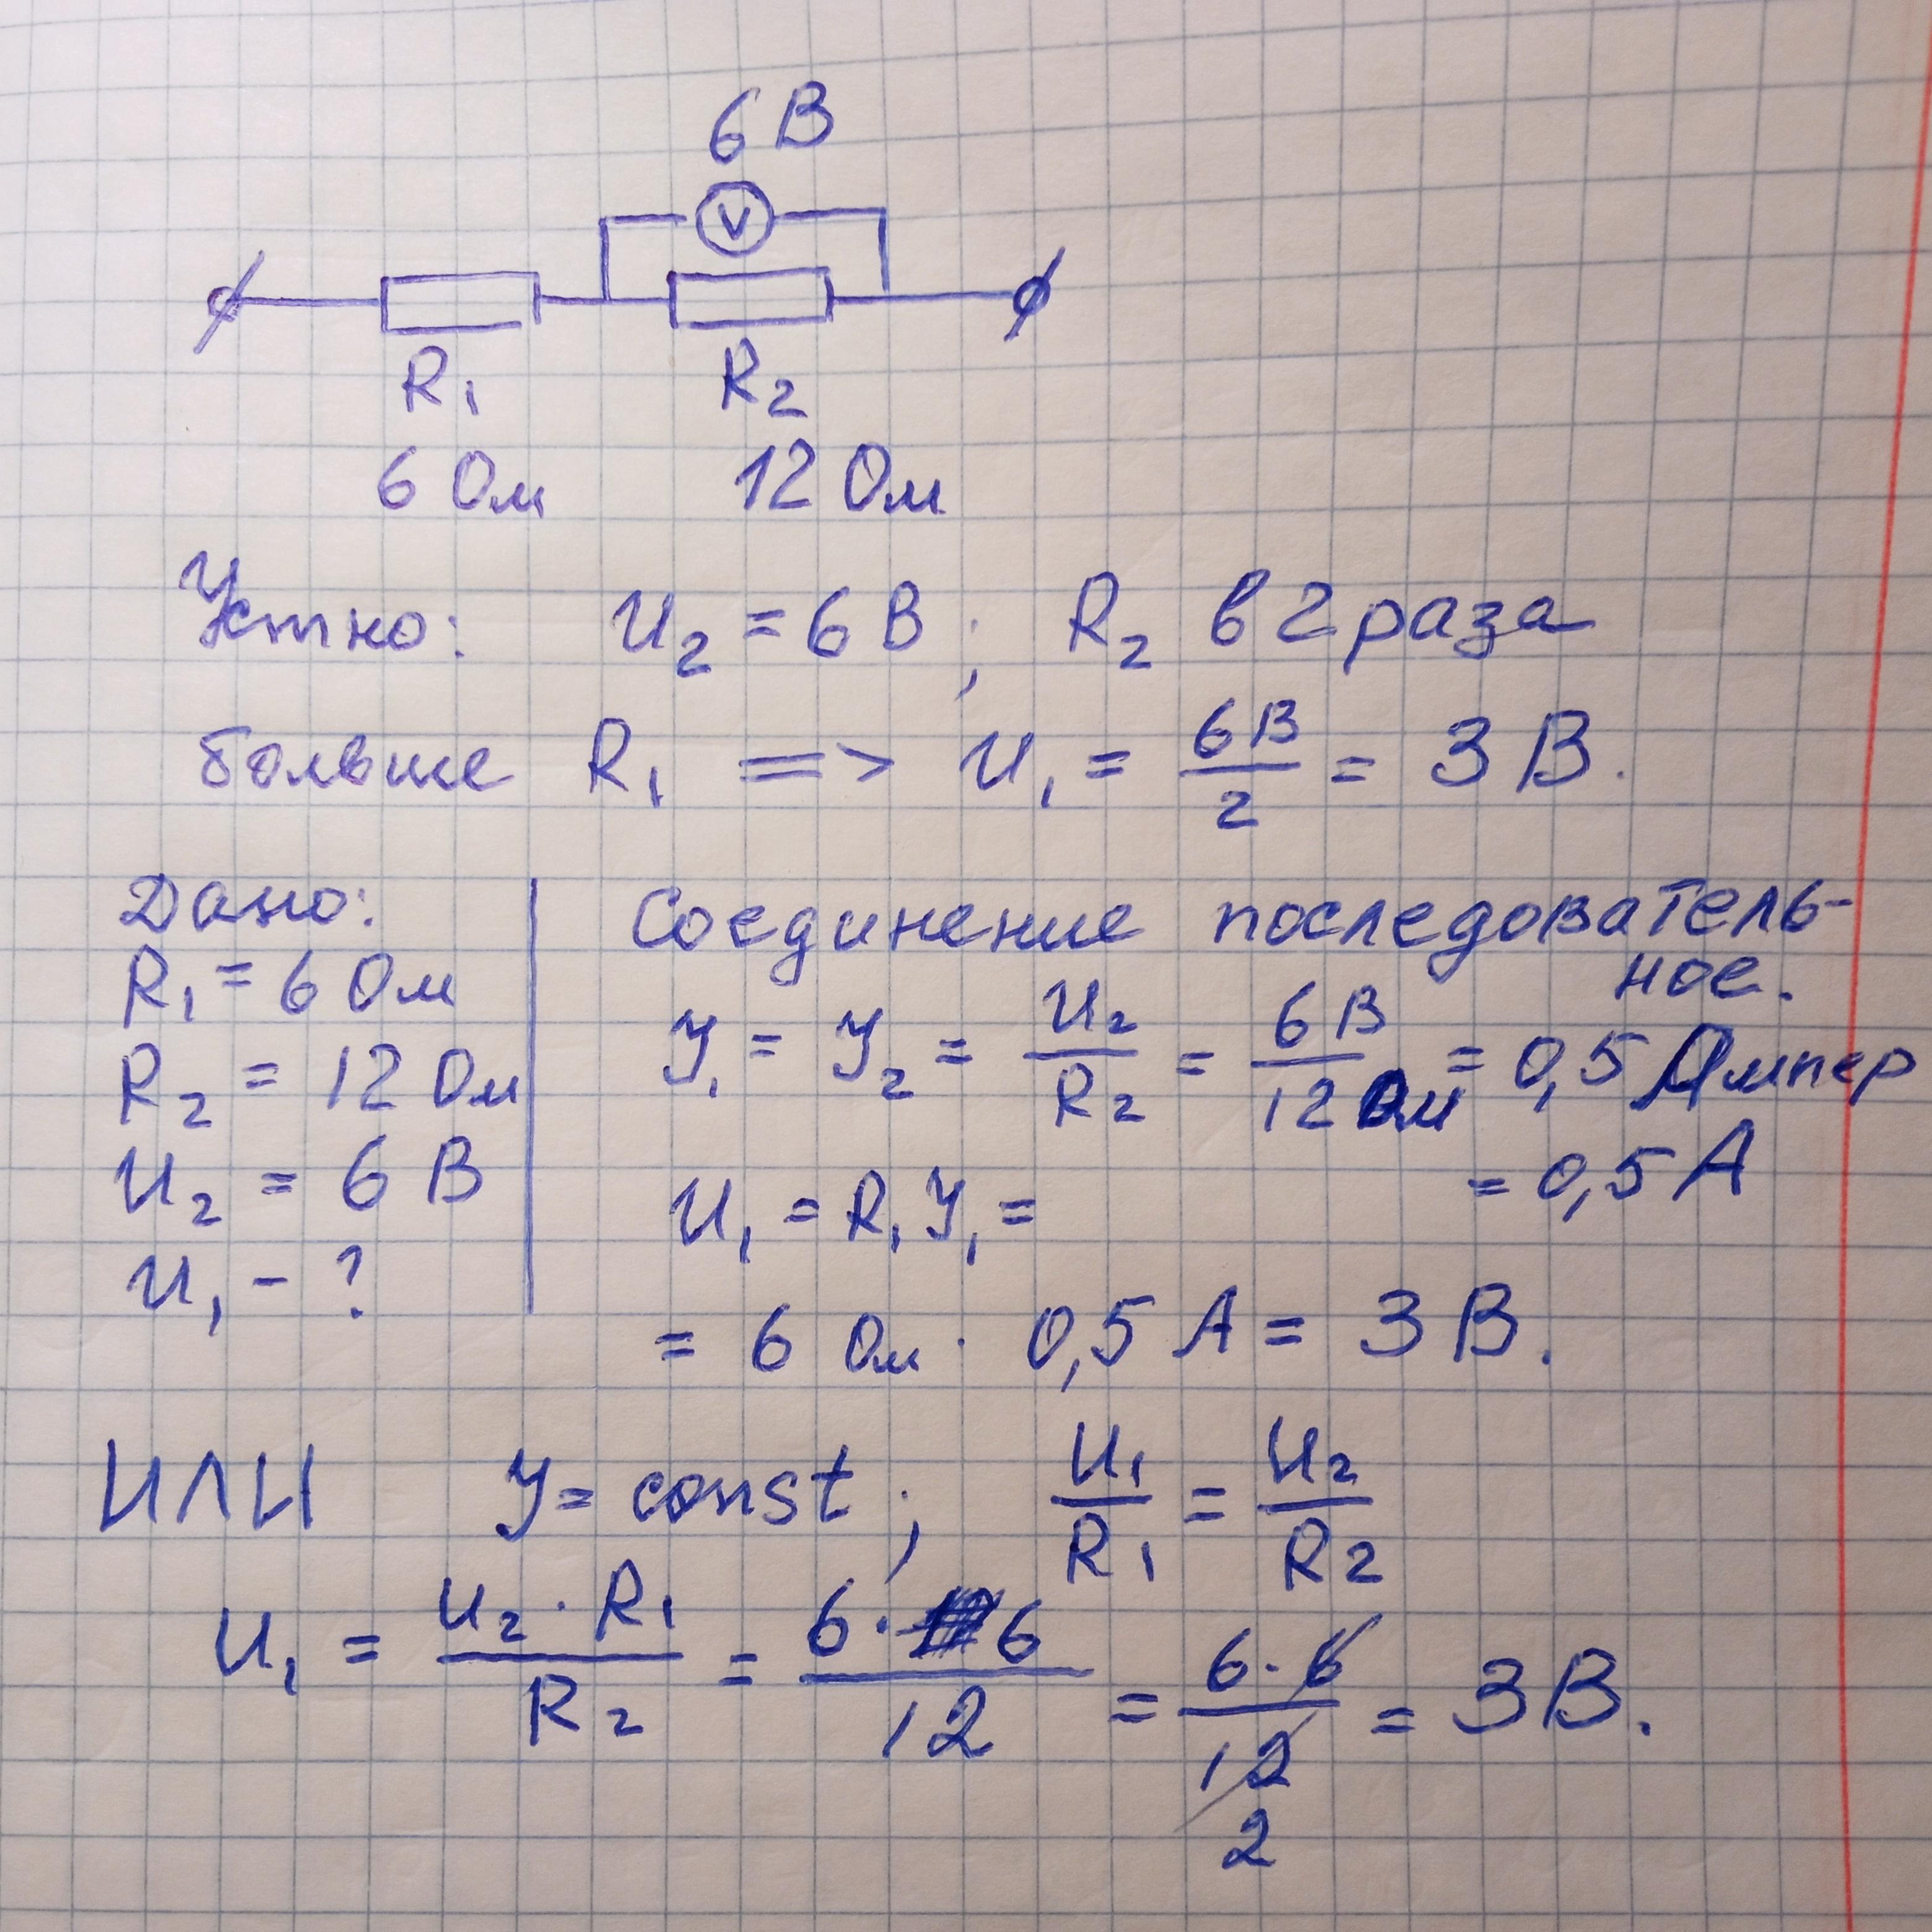 6 В
V
R₁ R₂
6 Ом 12 Ом
Устно: U₂ = 6 В; R₂ в 2 раза
больше R₁ => U₁ = 6В/2 = 3 В.
Дано:
R₁ = 6 Ом
R₂ = 12 Ом
U₂ = 6 В
U₁ - ?
Соединение последователь-
ное.
У₁ = У₂ = U₂/R₂ = 6 В/12 Ом = 0,5 Ампер
= 0,5 А
U₁ = R₁ У₁ =
= 6 Ом · 0,5 А = 3 В.
ИЛИ У = const; U₁/R₁ = U₂/R₂
U₁ = U₂ · R₁/R₂ = 6 · 6/12 = 6 · 6/12 = 3 В.
2